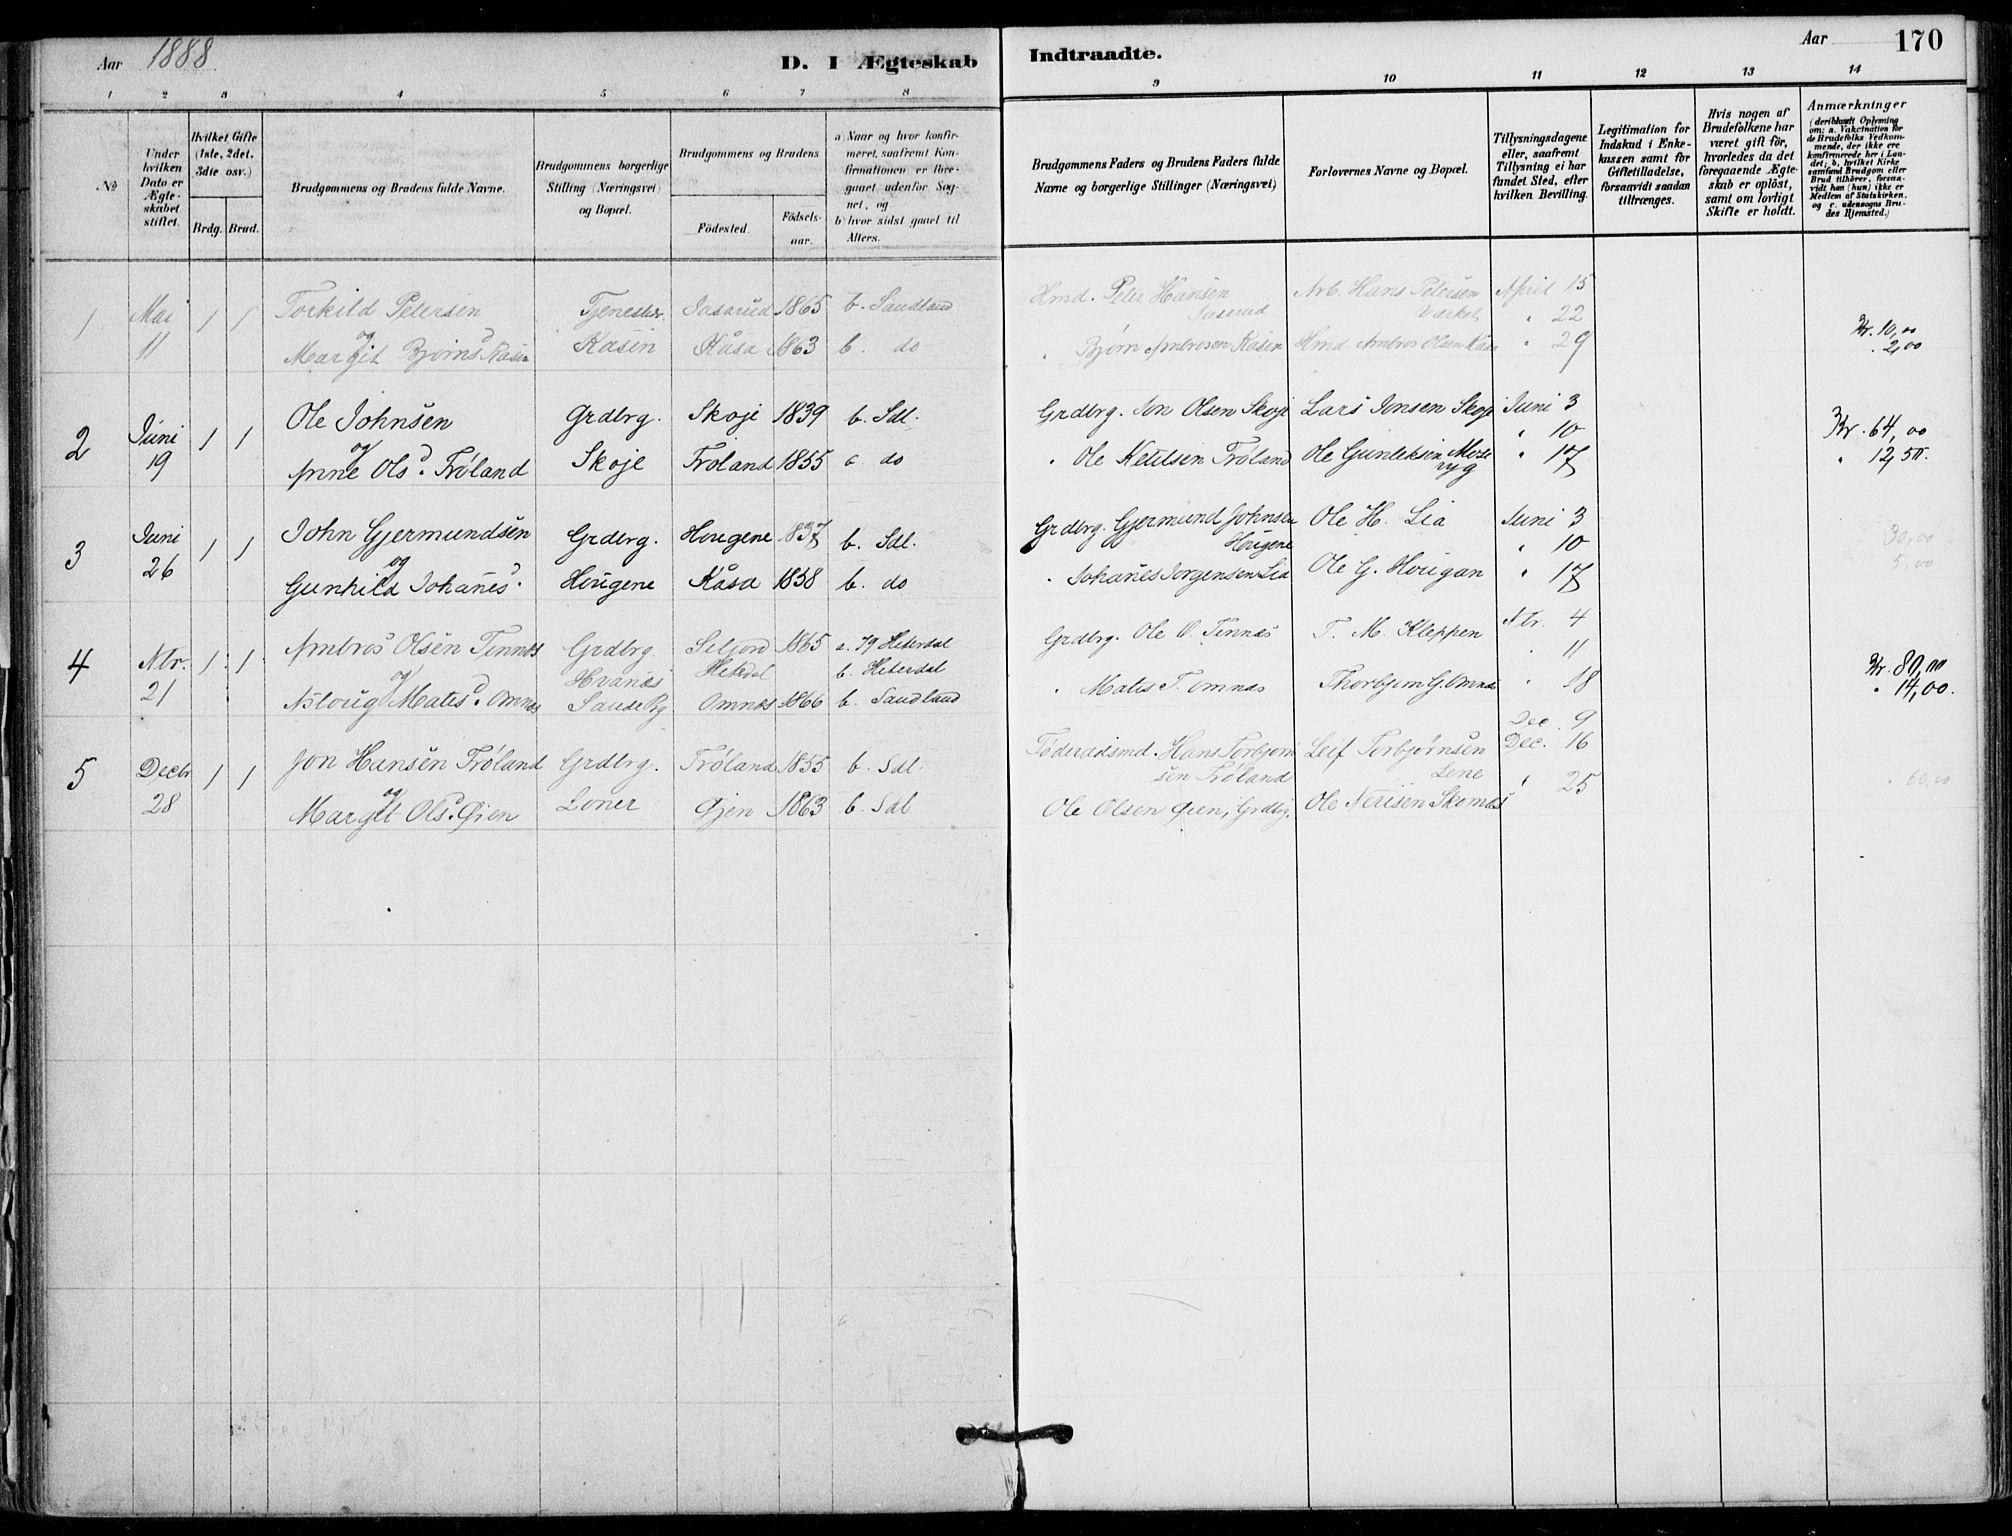 Aar 1888
D. I Ægteskab
Indtraadte.
Aar 170
1 2 3 4 5 6 7 8
9 10 11 12 13 14
No
Under hvilken Dato er Ægteskabet stiftet.
Hvilket Gifte (1ste, 2det, 3die osv.)
Brdg. Brud.
Brudgommens og Brudens fulde Navne.
Brudgommens borgerlige Stilling (Næringsvei) og Bopæl.
Brudgommens og Brudens
Födested.
Födselsaar.
a) Naar og hvor konfirmeret, saafremt Konfirmationen er foregaaet udenfor Sognet, og
b) hvor sidst gaaet til Alters.
Brudgommens Faders og Brudens Faders fulde Navne og borgerlige Stillinger (Næringsvei)
Forlovernes Navne og Bopæl.
Tillysningsdagene eller, saafremt Tillysning ei har fundet Sted, efter hvilken Bevilling.
Legitimation for Indskud i Enkekassen samt for Giftetilladelse, forsaavidt saadan tiltrænges.
Hvis nogen af Brudefolkene har været gift för, hvorledes da det foregaaende Ægteskab er oplöst, samt om lovligt Skifte er holdt.
Anmærkninger
(deriblandt Oplysning om: a. Vakcination for de Brudefolks Vedkommende, der ikke ere konfirmerede her i Landet; b. hvilket Kirkesamfund Brudgom eller Brud tilhörer, forsaavidt han (hun) ikke er Medlem af Statskirken, og c. udensogns Brudes Hjemsted.)
1 Mai 11 1 1
Torkild Petersen Tjenestkr. Jasarud 1865 b. Sandland Hmd. Peter Hansen Jaserud Arb. Hans Petersen Værket April 15
og " 22
Margit Bjørnsd Kåsin Kåsin Kåsa 1863 b. do " Bjørn Ambrosen Kåsin Hmd. Ambros Olsen Kåsa " 29
Kr. 10,00
" 2,00
2 Juni 19 1 1
Ole Johnsen Grdbrg. Skoje 1839 b. Sdl. Grdbrg. Jon Olsen Skoje Lars Jonsen Skoje Juni 3
og " 10
Anne Olsd. Frøland Skoje Frøland 1855 a do " Ole Ketilsen Frøland Ole Gunleksen " 17
Kr. 64,00
" 12,50.
3 Juni 26 1 1
John Gjermundsen Grdbrg. Hougene 1837 b. Sdl. Grdbrg. Gjermund Johnsen Hougene Ole H. Lia Juni 3
og " 10
Gunhild Johanesd. Hougene Kåsa 1838 b. do " Johanes Jorgensen Lia Ole G. Hougan " 17
30,00
5,00
4 Nbr. 21 1 1
Ambros Olsen Tinnæs Grdbrg. Seljord 1865 a. 79 Hiterdal Grdbrg. Ole O. Tinnæs T. M. Kleppen Nbr. 4
og Hvanæs b. Hiterdal " 11
Aslaug Matesd. Omnæs Omnæs 1866 b. Sandland " Mates T. Omnæs Thorbjørn G. Omnæs " 18
Kr. 80,00
" 14,00.
5 Decbr 28 1 1
Dec 9
Jon Hansen Frøland Grdbrg. Frøland 1855 b. Sdl. Føderaadsmd. Hans Torbjørnsen Frøland Leif Torbjørnsen Lene Dec. 16
og " 25
Margit Olsd. Øien Loner Øjen 1863 b. Sdl Ole Olsen Øien, Grdbg. Ole Nerisen Skomæs
" 60,00